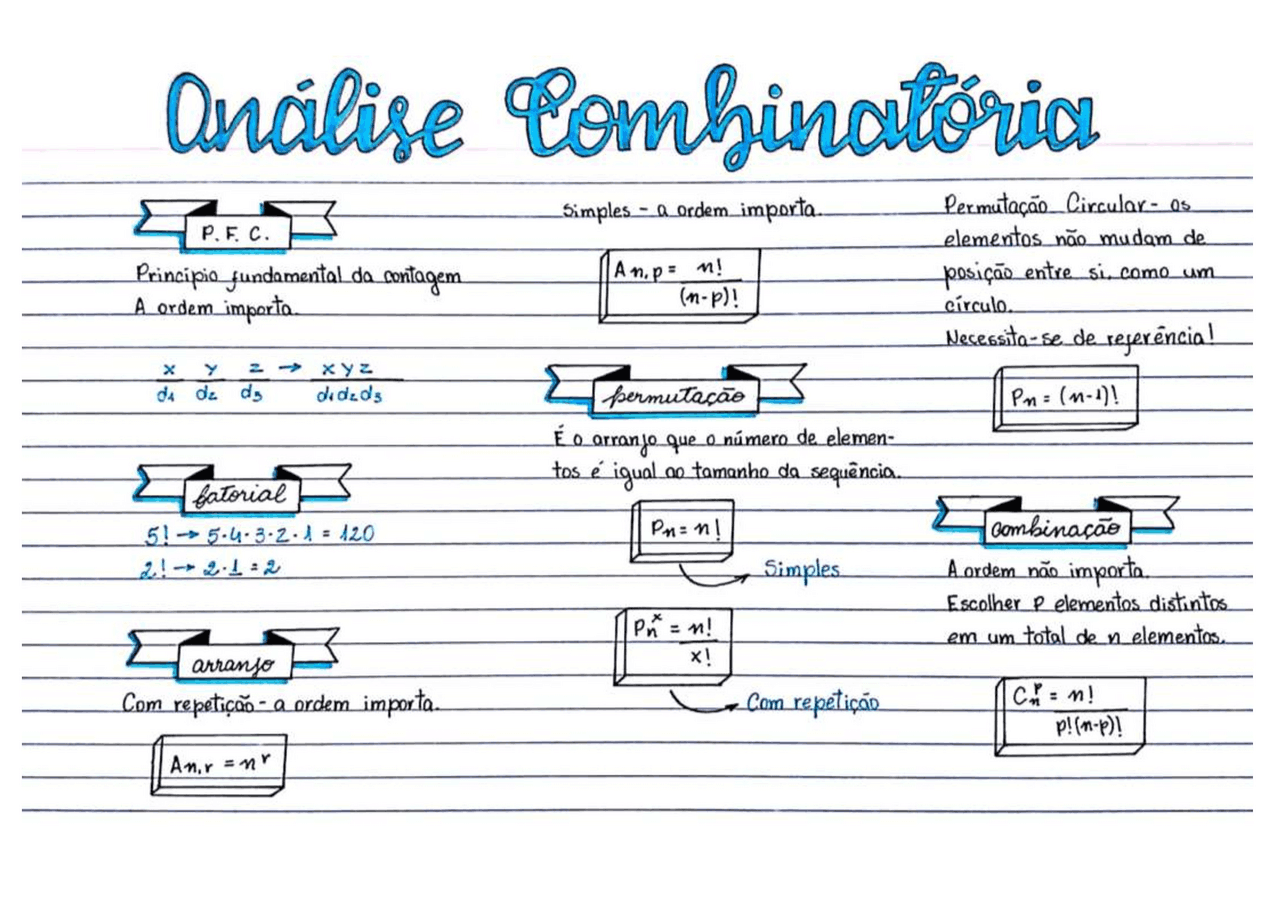 Análise Combinatória
P. F. C.
Princípio fundamental da contagem
A ordem importa.
x y z → x y z
d1 d2 d3 d1d2d3
fatorial
5! → 5·4·3·2·1 = 120
2! → 2·1 = 2
arranjo
Com repetição - a ordem importa.
An,r = n^r
Simples - a ordem importa.
An,p = n!
(n-p)!
permutação
É o arranjo que o número de elemen-
tos é igual ao tamanho da sequência.
Pn = n!
Simples
Pn^x = n!
x!
Com repetição
Permutação Circular - os
elementos não mudam de
posição entre si, como um
círculo.
Necessita-se de referência!
Pn = (n-1)!
combinação
A ordem não importa.
Escolher p elementos distintos
em um total de n elementos.
Cn^p = n!
p!(n-p)!